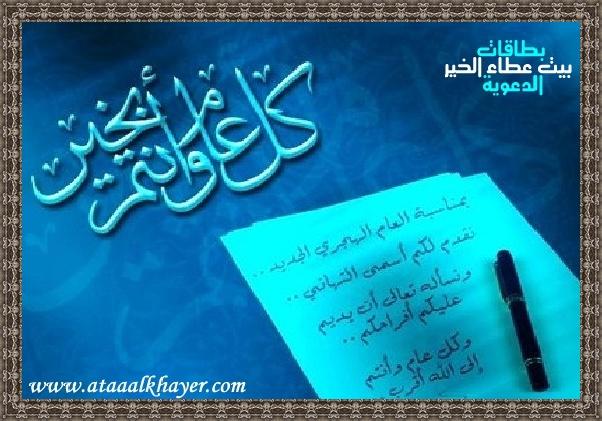 بطاقات
بيت عطاء الخير
الدعوية
كل عام وأنتم بخير
بمناسبة العام الهجري الجديد ..
نقدم لكم أسمى التهاني ..
ونسأله تعالى أن يديم
عليكم أفراحكم ..
وكل عام وأنتم
إلى الله أقرب
www.ataaalkhayer.com